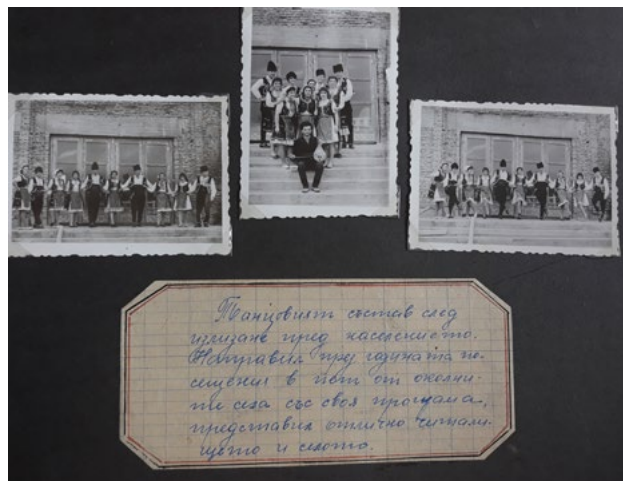 Танцовият състав след
излизане пред населението.
Направил през годината по-
сещения в пет от околни-
те села със своя програма,
представил отлично читали-
щето и селото.